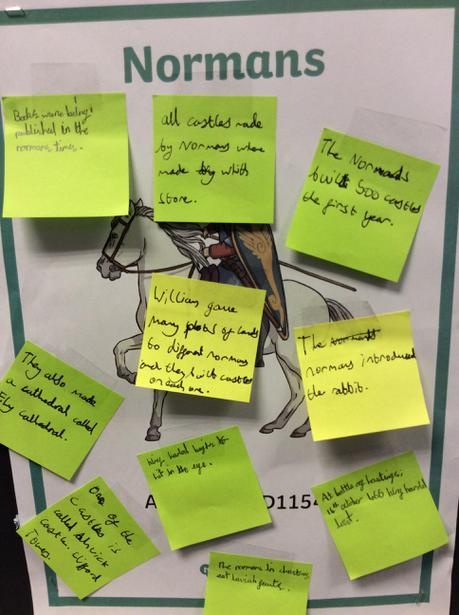 Normans
Books were being
published in the
normans times.
all castles made
by Normans where
made by whith
store.
The Normands
built 500 castles
the first year.
William gave
Many plots of land
to different normans
and they built castles
on each one.
The
normans introduced
the rabbit.
They also made
a cathedral called
Elly cathedral.
King harold
hit in the eye.
At battle of hastings,
14th october
lost.
One of the
castles is
called Alnwick
castle, clifford
Tower.
D1154
The normans
eat lavish feasts.